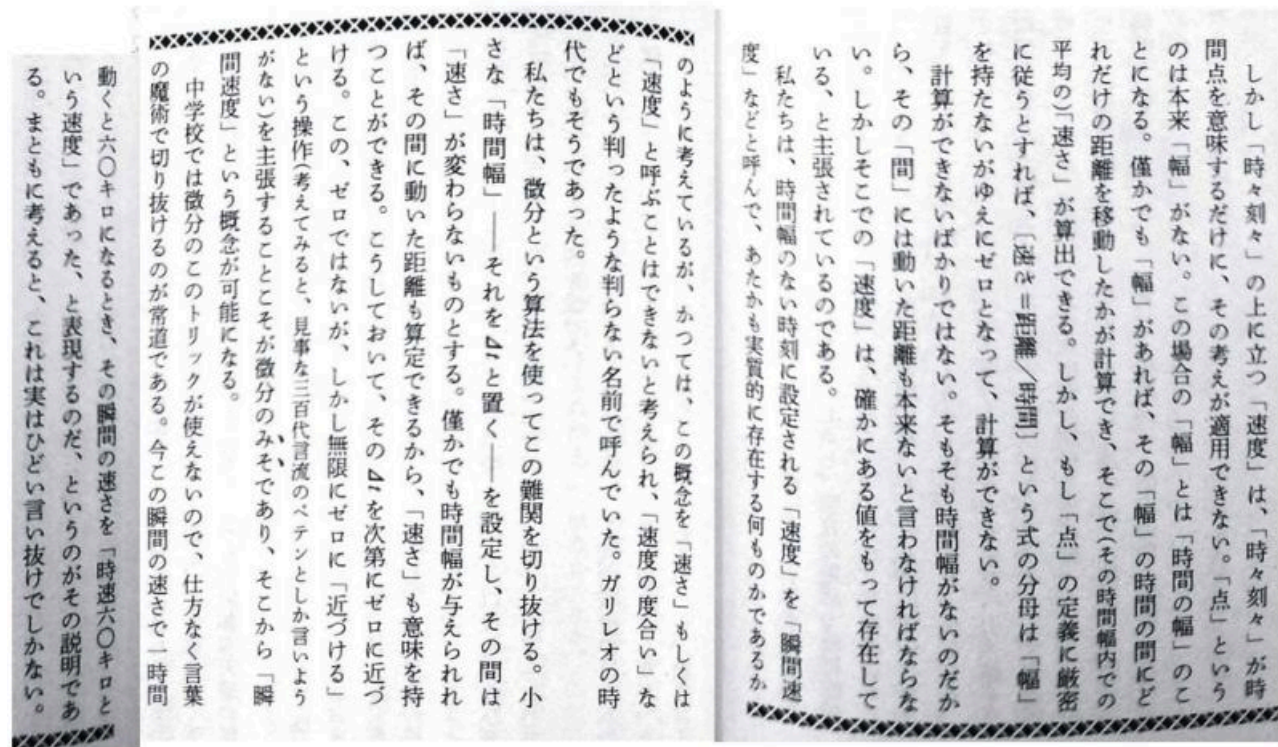 しかし「時々刻々」の上に立つ「速度」は、「時々刻々」が時
間点を意味するだけに、その考えが適用できない。「点」という
のは本来「幅」がない。この場合の「幅」とは「時間の幅」のこ
とになる。僅かでも「幅」があれば、その「幅」の時間の間にど
れだけの距離を移動したかが計算でき、そこで(その時間幅内での
平均の)「速さ」が算出できる。しかし、もし「点」の定義に厳密
に従うとすれば、〔速さ=距離/時間〕という式の分母は「幅」
を持たないがゆえにゼロとなって、計算ができない。
計算ができないばかりではない。そもそも時間幅がないのだか
ら、その「間」には動いた距離も本来ないと言わなければならな
い。しかしそこでの「速度」は、確かにある値をもって存在して
いる、と主張されているのである。
私たちは、時間幅のない時刻に設定される「速度」を「瞬間速
度」などと呼んで、あたかも実質的に存在する何ものかであるか
のように考えているが、かつては、この概念を「速さ」もしくは
「速度」と呼ぶことはできないと考えられ、「速度の度合い」な
どという判ったような判らない名前で呼んでいた。ガリレオの時
代でもそうであった。
私たちは、微分という算法を使ってこの難関を切り抜ける。小
さな「時間幅」——それをΔtと置く——を設定し、その間は
「速さ」が変わらないものとする。僅かでも時間幅が与えられれ
ば、その間に動いた距離も算定できるから、「速さ」も意味を持
つことができる。こうしておいて、そのΔtを次第にゼロに近づ
ける。この、ゼロではないが、しかし無限にゼロに「近づける」
という操作(考えてみると、見事な三百代言流のペテンとしか言いよう
がない)を主張することこそが微分のみそであり、そこから「瞬
間速度」という概念が可能になる。
中学校では微分のこのトリックが使えないので、仕方なく言葉
の魔術で切り抜けるのが常道である。今この瞬間の速さで一時間
動くと六〇キロになるとき、その瞬間の速さを「時速六〇キロと
いう速度」であった、と表現するのだ、というのがその説明であ
る。まともに考えると、これは実はひどい言い抜けでしかない。